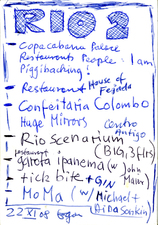 RIO 2
Copacabana Palace
Restaurant People: I am
Piggibaching!
Restaurant House of
Fejoada
Confeitaria Colombo
Huge Mirrors
Centro
Antigo
Rio Scenarium
(BIG, 3 flrs)
restaurant
garota ipanema (w/ John
Mawr)
tick bite + GIN
MoMa (w/ Michael +
Aida Sonkin)
22 XI 08